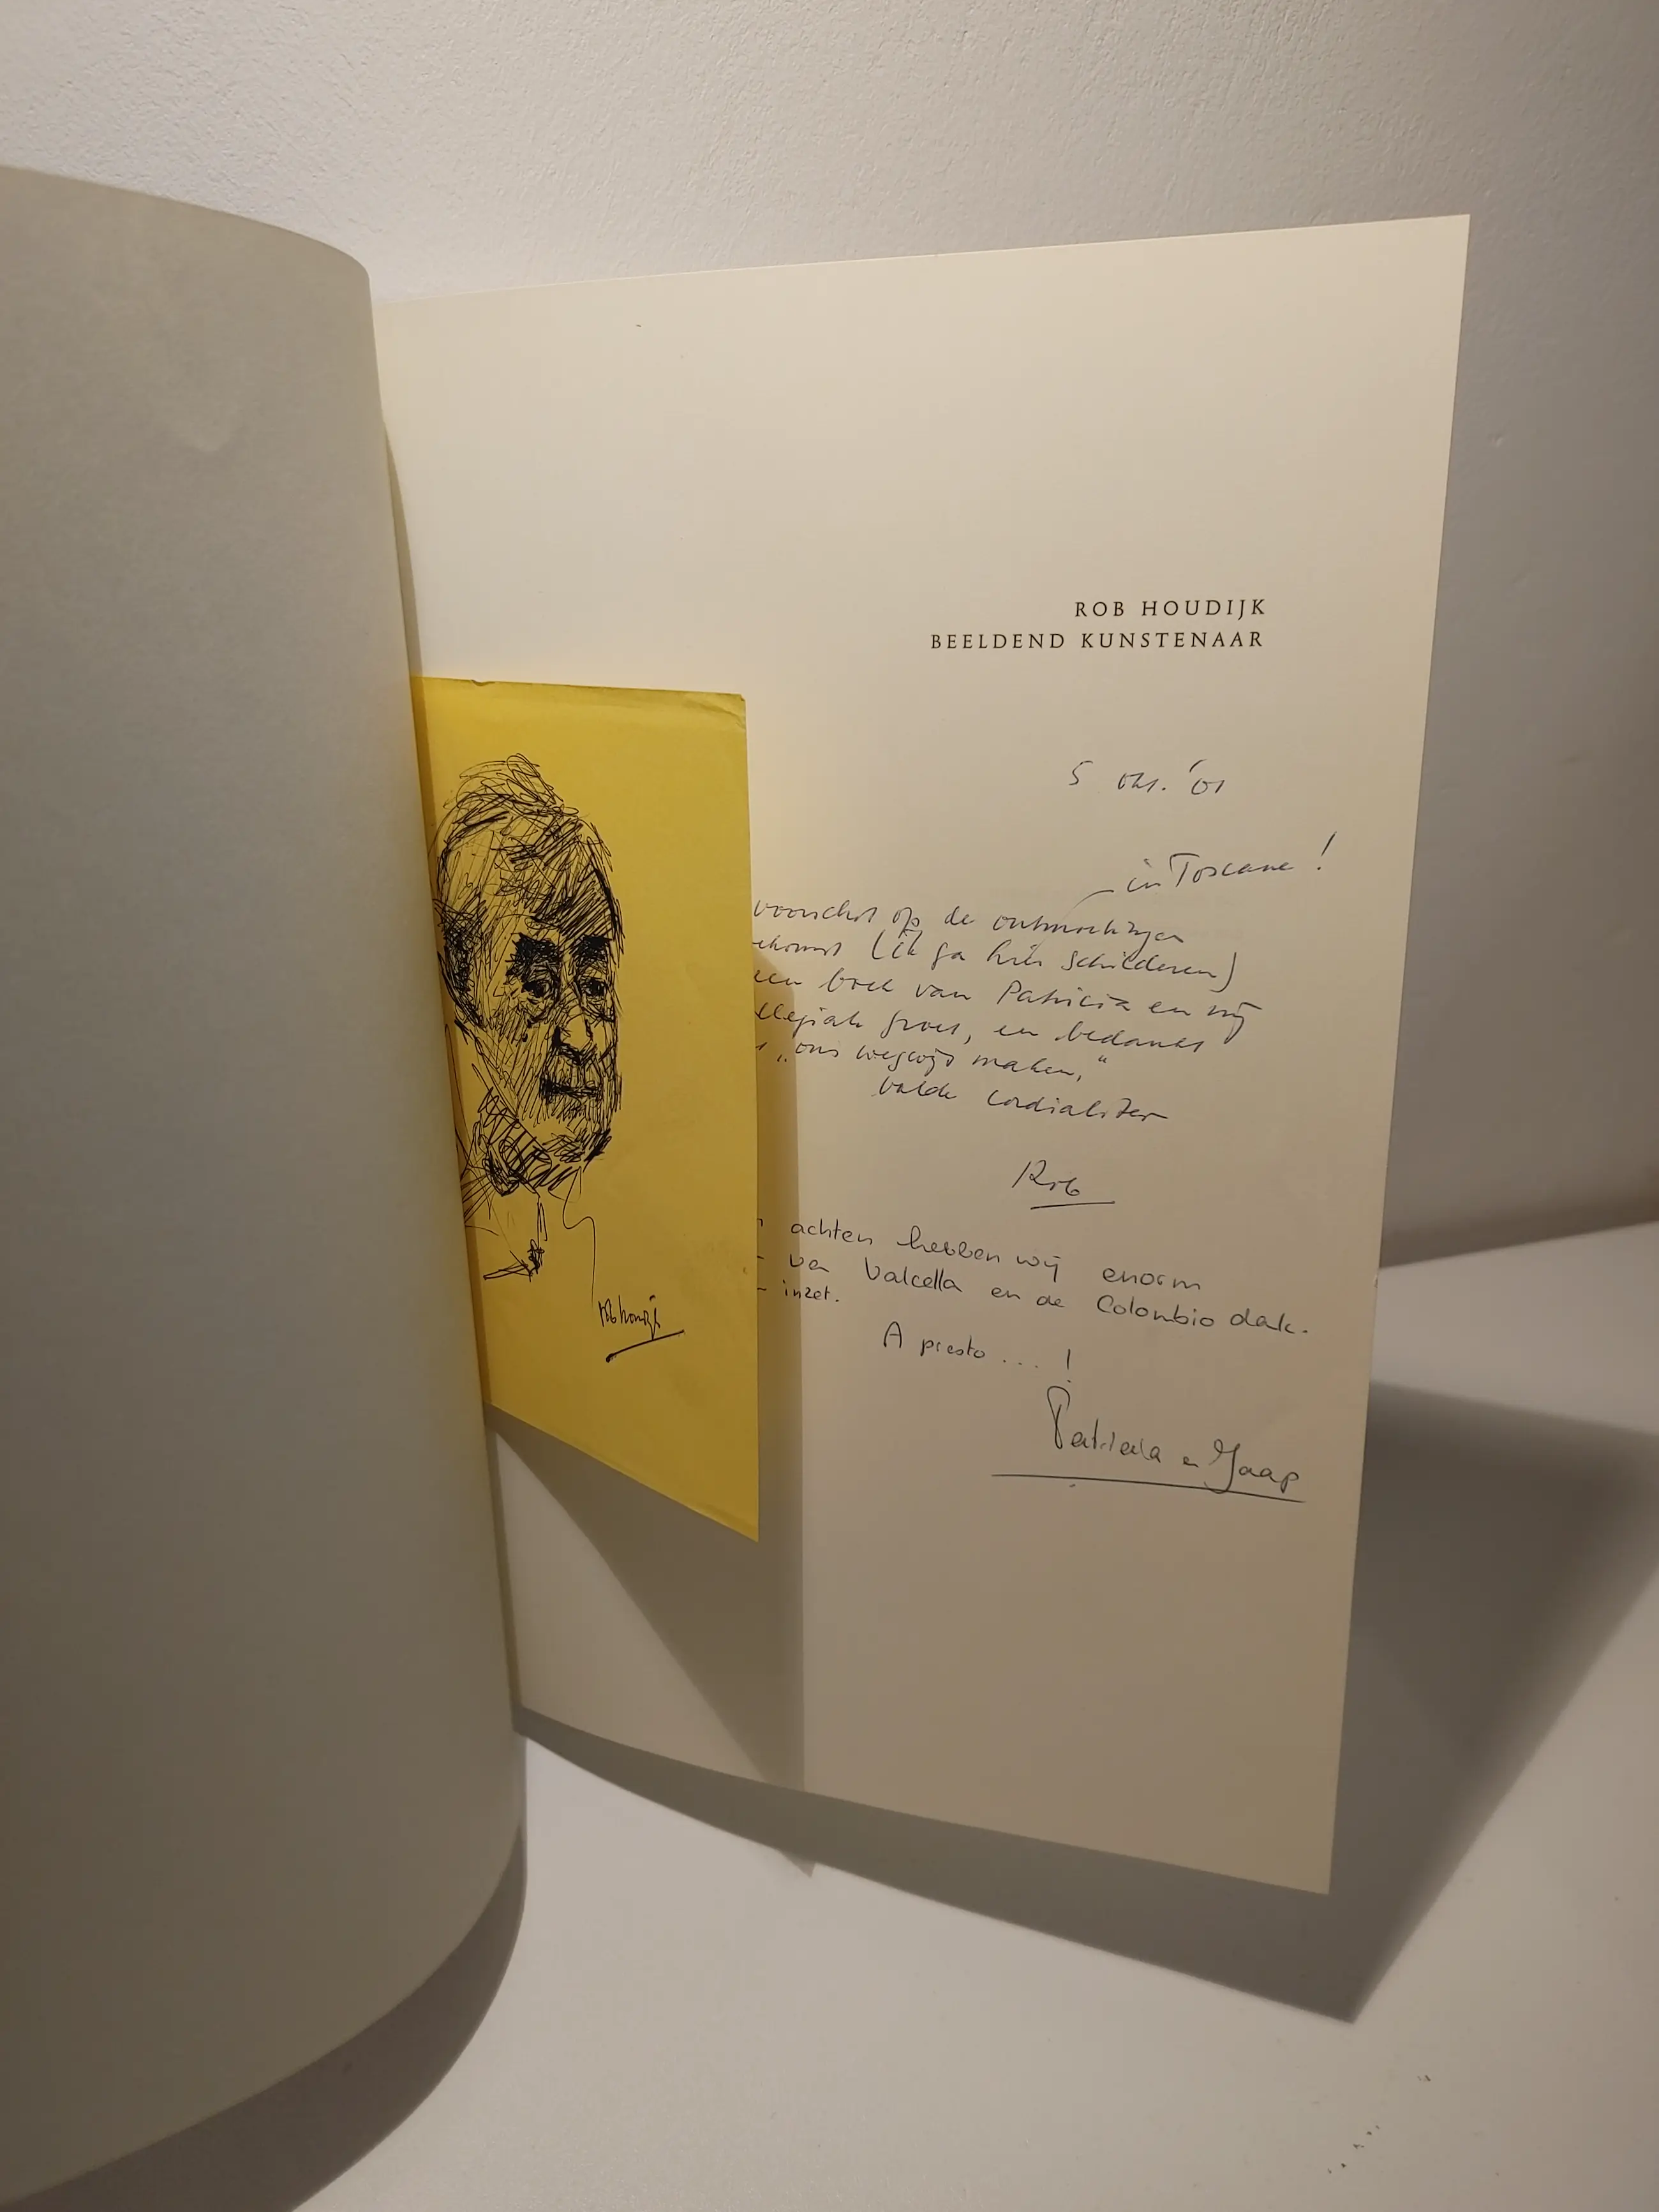 ROB HOUDIJK
BEELDEND KUNSTENAAR
5 okt. '01
in Toscane!
voorschot op de ontmoetingen
(ik ga hier schilderen)
boek van Patricia en mij
groet, en bedankt
„ons wegwijs maken,"
valde cordialiter
Rob
achten hebben wij enorm
van Valcella en de Colombio dak.
inzet.
A presto ... !
Patricia en Jaap